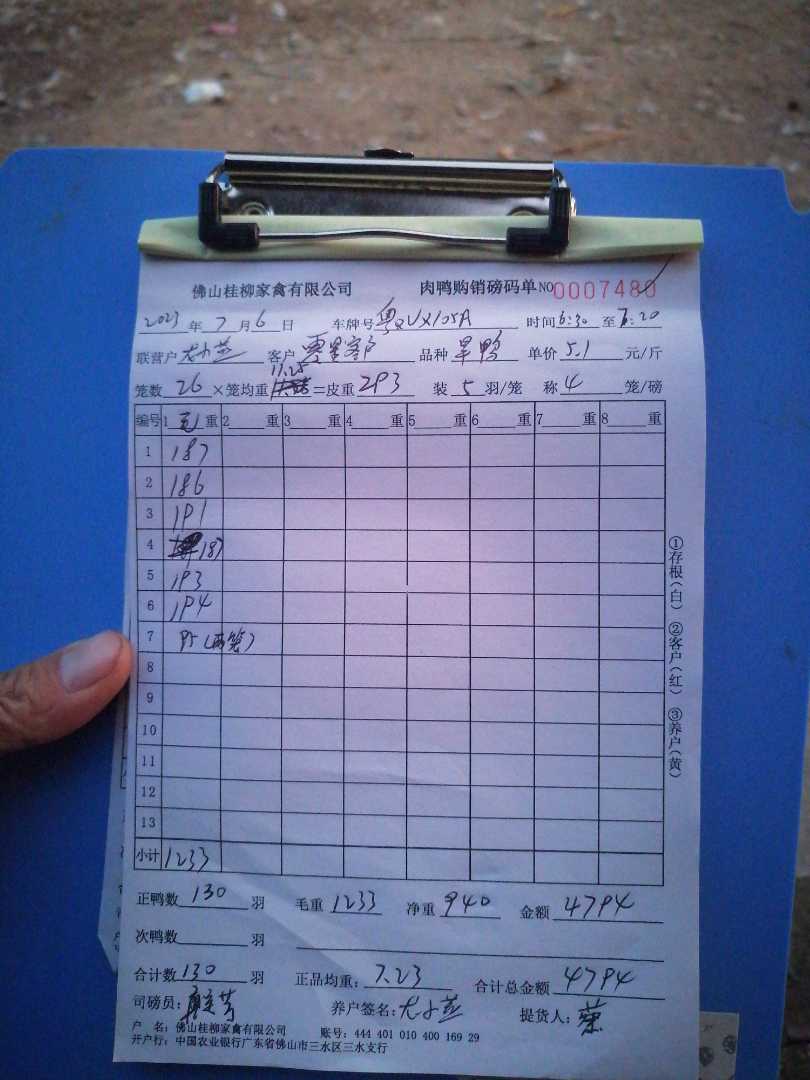 佛山桂柳家禽有限公司 肉鸭购销磅码单 NO 0007480
2023 年 7 月 6 日 车牌号 粤 时间 6:30 至 20
联营户 客户 零星客户 品种 旱鸭 单价 5.1 元/斤
笼数 26 × 笼均重 11.25 =皮重 293 装 5 羽/笼 称 4 笼/磅
编号 1 毛 重 2 重 3 重 4 重 5 重 6 重 7 重 8 重
1 187
2 186
3 191
4 187
5 193
6 194
7 95 (两笼)
8
9
10
11
12
13
小计 1233
①存根(白) ②客户(红) ③养户(黄)
正鸭数 130 羽 毛重 1233 净重 940 金额 4794
次鸭数 羽
合计数 130 羽 正品均重: 7.23 合计总金额 4794
司磅员: 养户签名: 提货人:
户 名: 佛山桂柳家禽有限公司 账号: 444 401 010 400 169 29
开户行: 中国农业银行广东省佛山市三水区三水支行